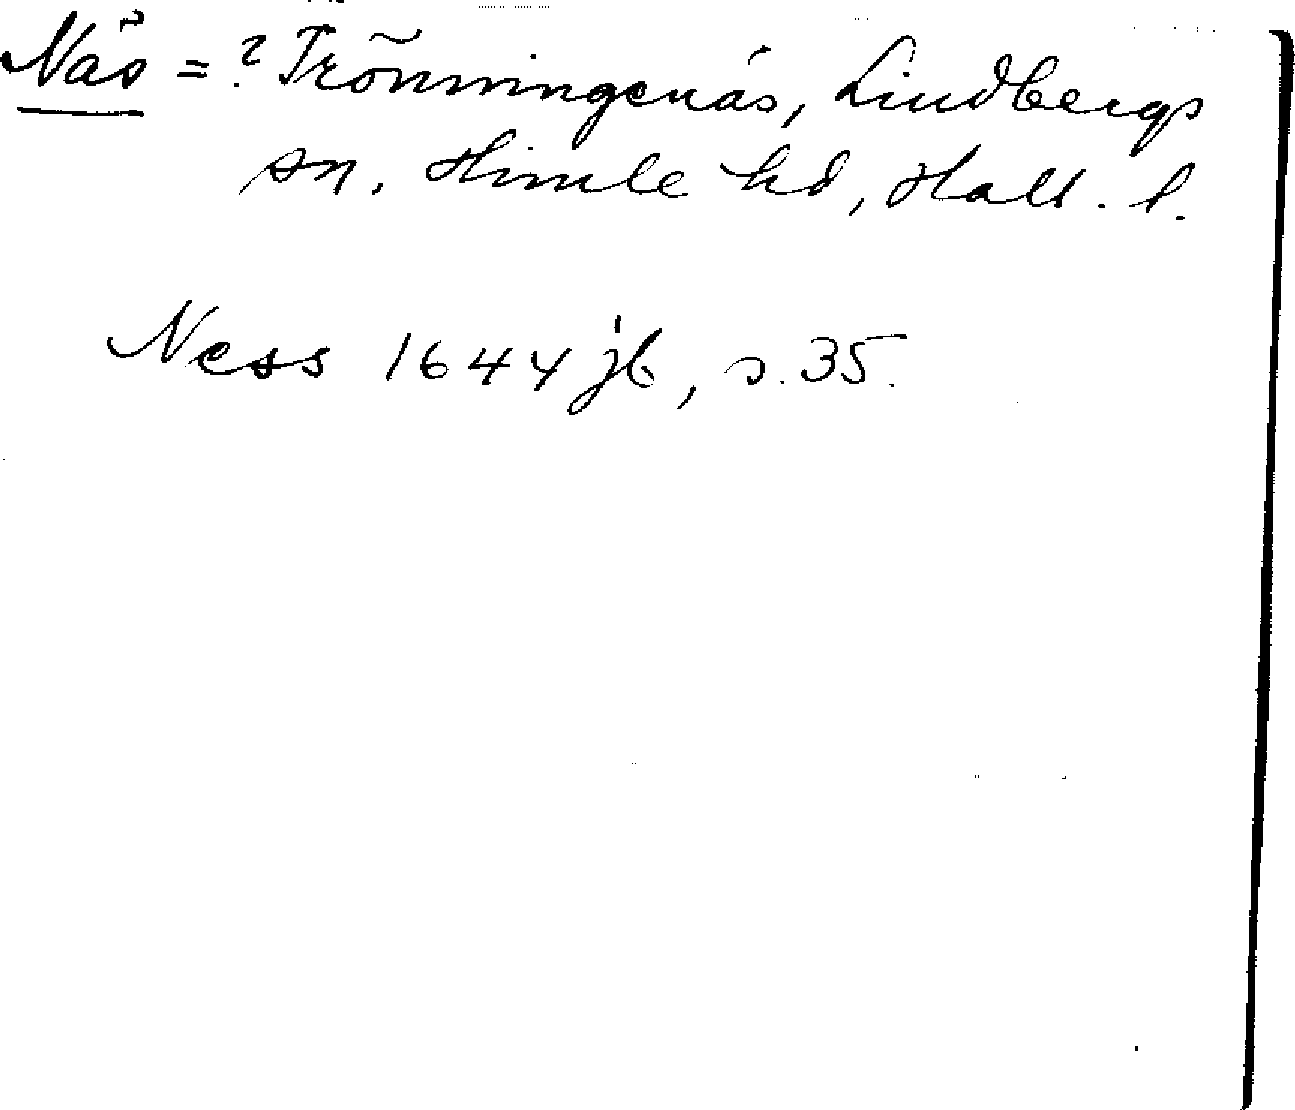 Näs = ? Trönningenäs, Lindbergs
sn. Himle hd, Hall. l.
Ness 1644 jb, s. 35.